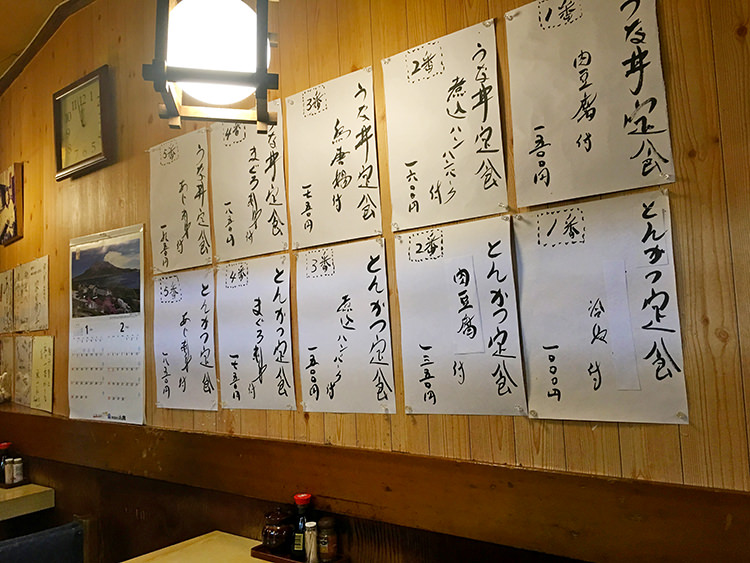 うな丼定食
1番
肉豆腐付
一五〇〇円
うな丼定食
2番
煮込ハンバーグ付
一六〇〇円
うな丼定食
3番
一七五〇円
うな丼定食
まぐろ刺身付
うな丼定食
5番
あじ刺身付
一九五〇円
とんかつ定食
1番
冷奴付
一〇〇〇円
とんかつ定食
2番
肉豆腐付
一三五〇円
とんかつ定食
3番
煮込ハンバーグ付
一五〇〇円
とんかつ定食
4番
まぐろ刺身付
一七五〇円
とんかつ定食
5番
あじ刺身付
一八五〇円
1
2